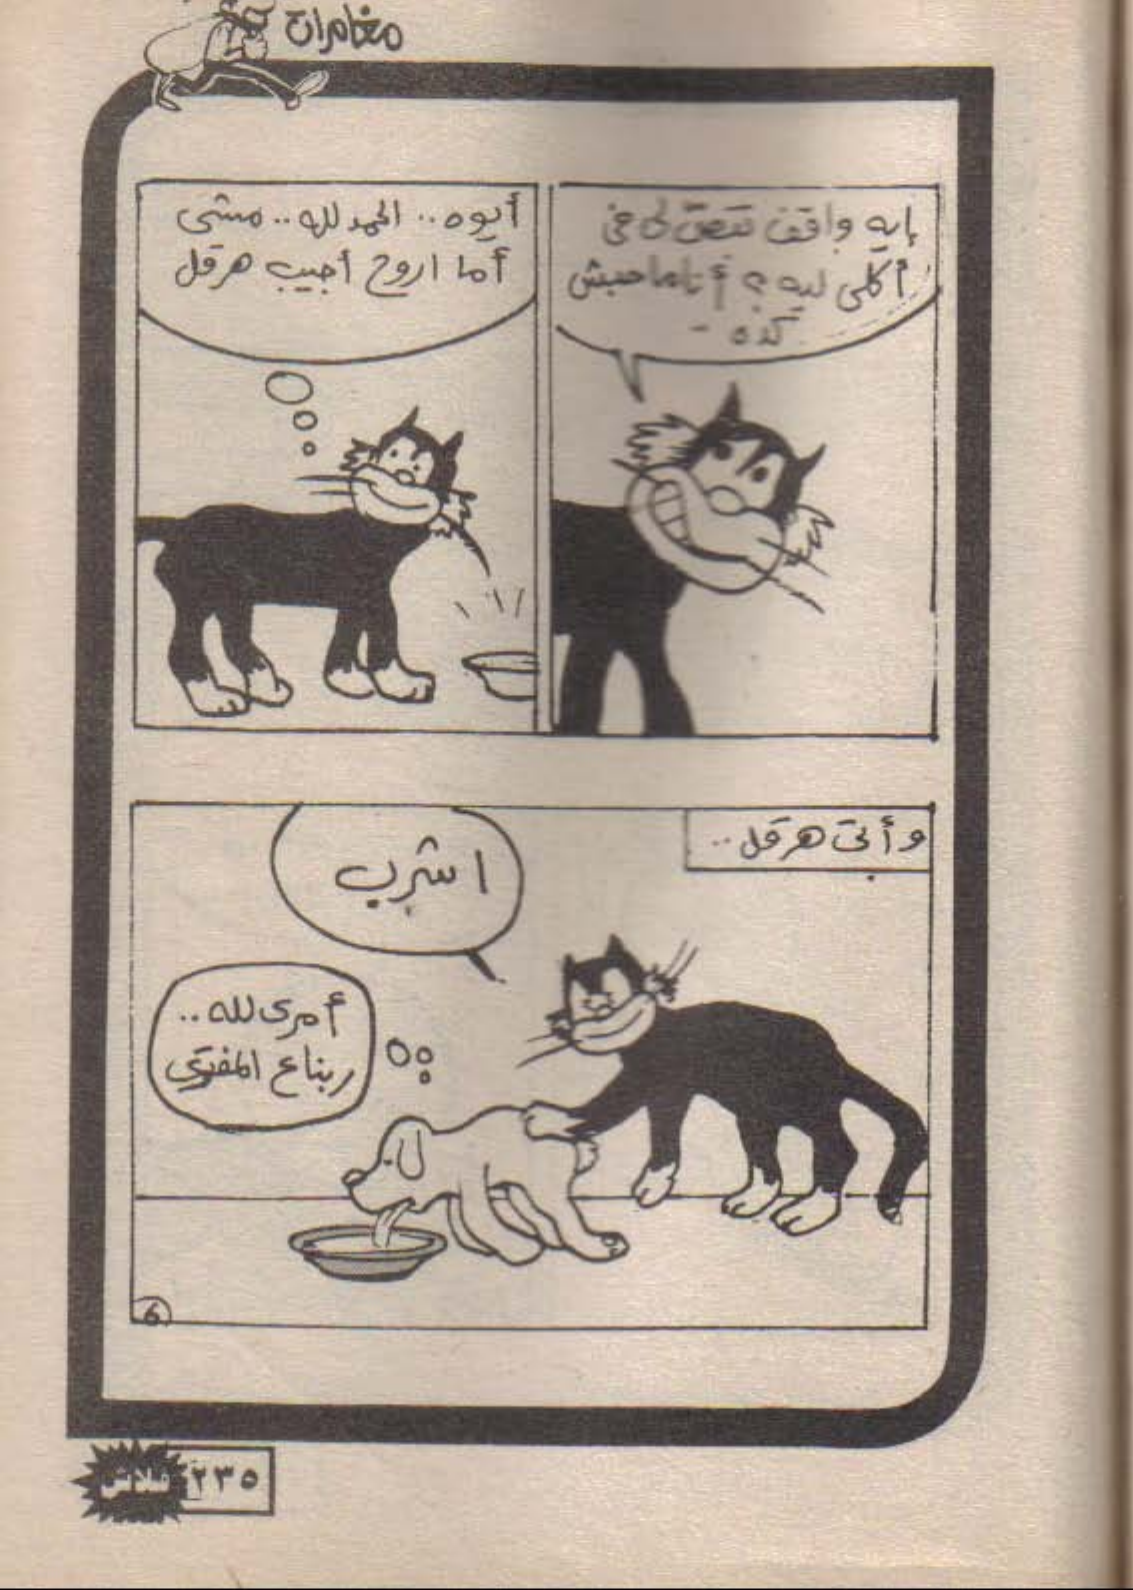 مغامرات
إيه واقف تتصتّ لى فى
أكلى ليه ؟ أنا ماحبش
كده -
أيوه .. الحمد لله .. مشى
أما اروح أجيب هرقل
و أتى هرقل ..
اشرب
أمرى لله ..
ربناع المفترى
6
٢٣٥
فلاش